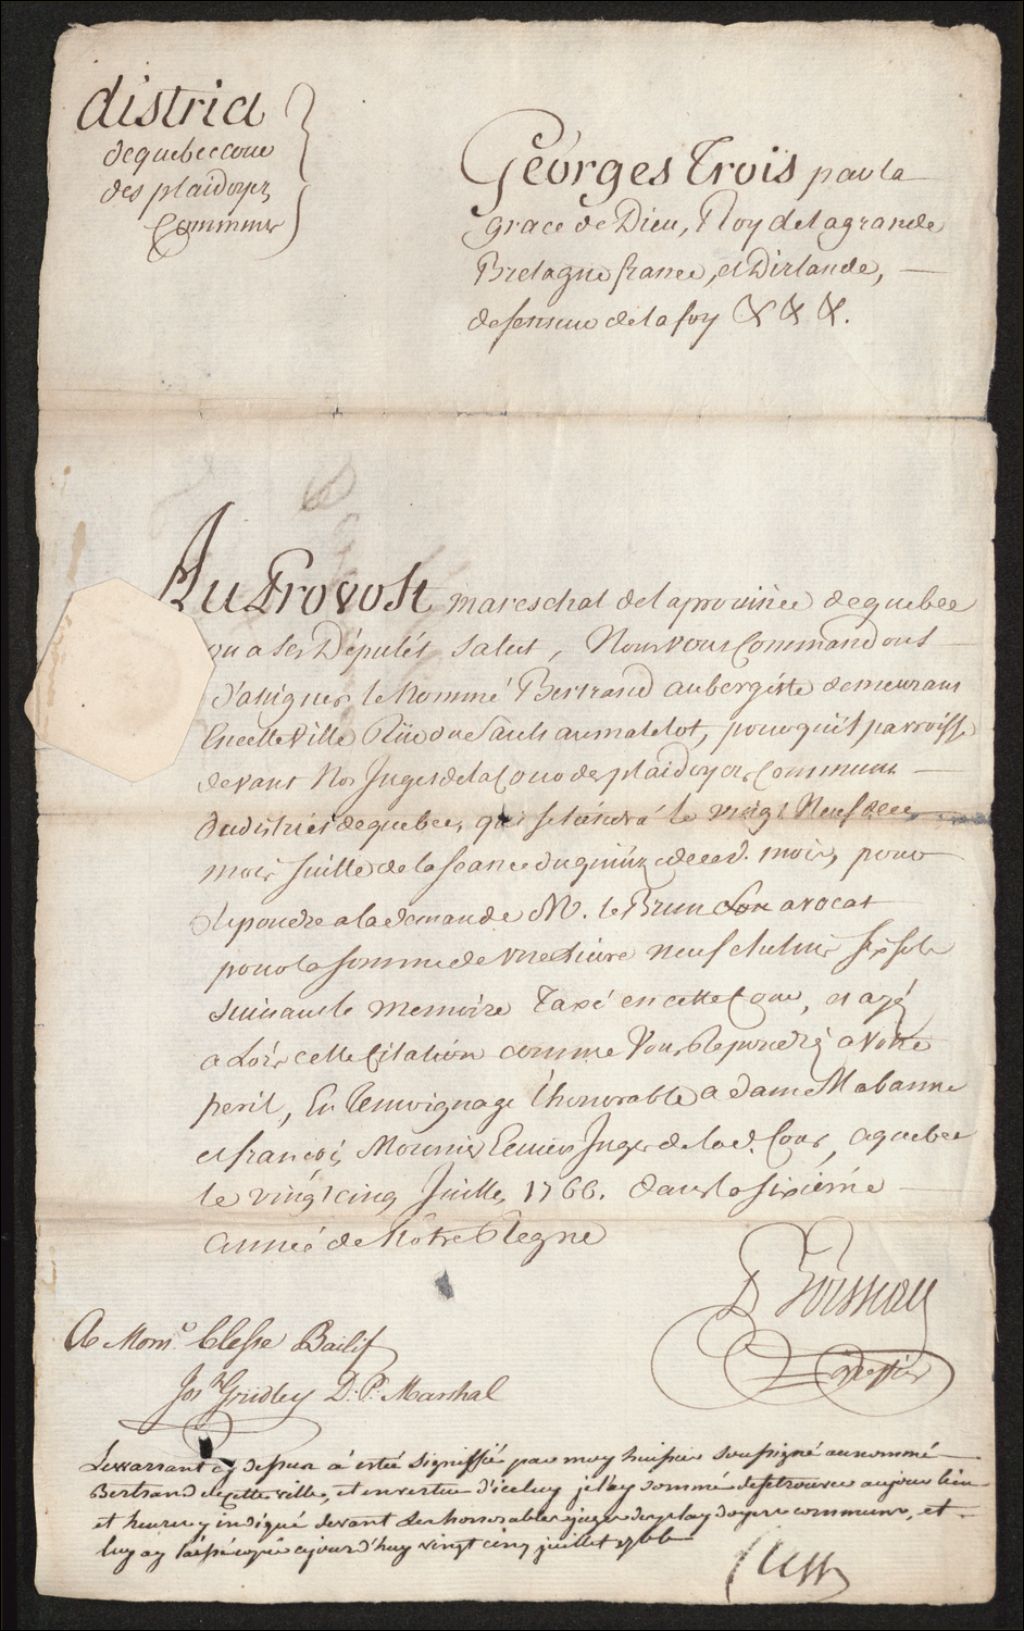 district
de quebec cour
des plaidoyez
Communs
Georges Trois par la
grace de Dieu, Roy de la grande
Bretagne france, et Dirlande,
defenseur de la foy & & &.
Au Provost mareschal de la province de quebec
ou a ses Députés salut, Nous vous Commandons
d'assigner le Nommé Bertrand aubergiste demeurant
En cette Ville Rüe du Sault au matelot, pour qu'il parroisse
devant Nos Juges de la Cour de plaidoyez Communs
du district de quebec, qui se tiendra le vingt Neuf de ce
mois suitte de la seance du quinze de ced. mois, pour
Repondre a la demande de M. le Brun Son avocat
pour la somme de une Livre neuf chelins six sols
suivant le memoire Taxé en cette Cour, et ayé
a Loir cette Citation comme Vous Repondré a votre
peril, En Temoignage l'honorable adam Mabanne
et françois Mounier Ecuiers Juges de lad. Cour, a quebec
le vingt cinq Juille, 1766. dans la sixiéme
année de Nôtre Regne
P Boisseau
Greffier
A Monsr. Clesse Bailif
Josh Gridley D. P. Marshal
Le warrant cy dessus à estée signiffiée par moy huissier soussigné au nommé
Bertrand de cette ville, et en vertue d'iceluy je l'ay sommé de se trouver au jour lieu
et heure y indiqué devant Les honorables juges des playdoyers communs, et
luy ay laissé copie ce jour d'huy vingt cinq juillet 1766
Cless